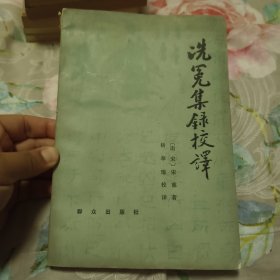 洗冤集録校譯
〔南宋〕宋慈 著
杨奉琨 校译
群众出版社